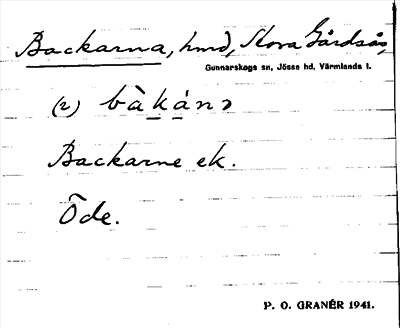 Backarna, hmd, Stora Gårdsås,
Gunnarskogs sn, Jösse hd, Värmlands l.
(2) bàkánɔ
Backarne ek.
Öde.
P. O. GRANÉR 1941.